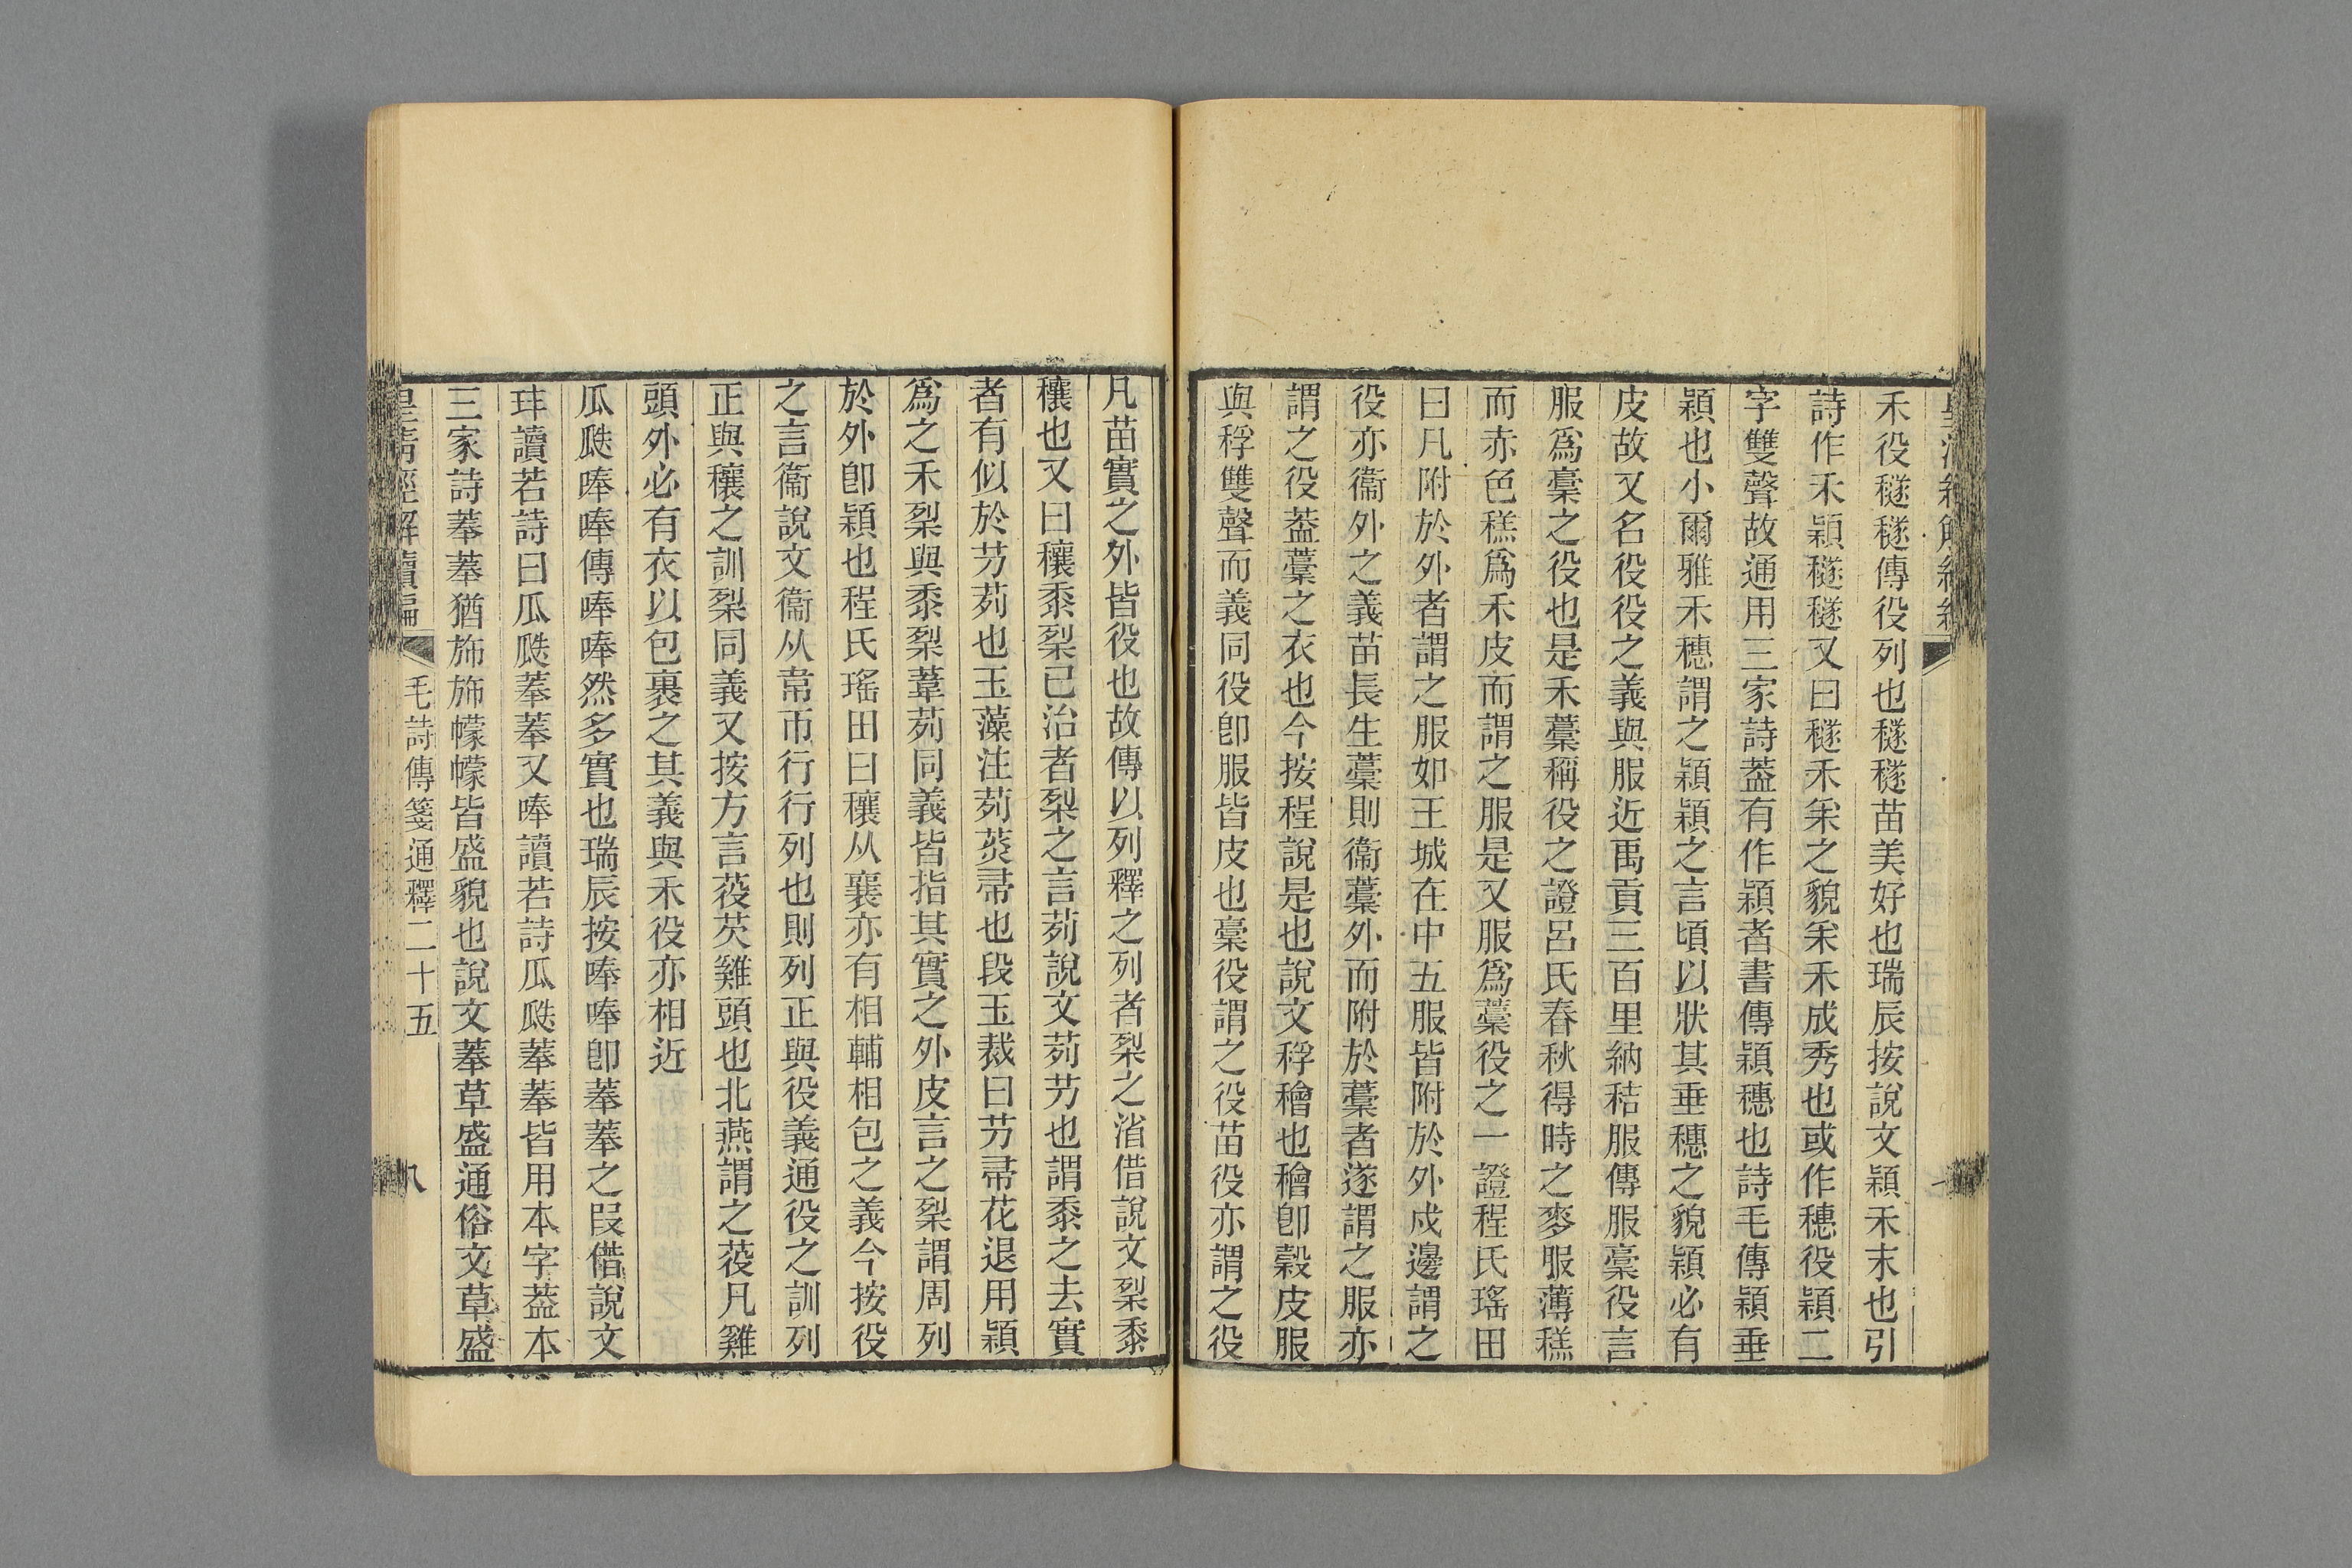 禾役穟穟傳役列也穟穟苗美好也瑞辰按說文穎禾末也引
詩作禾穎穟穟又曰穟禾采之貌采禾成秀也或作穗役穎二
字雙聲故通用三家詩葢有作穎者書傳穎穗也詩毛傳穎垂
穎也小爾雅禾穗謂之穎穎之言頃以狀其垂穗之貌穎必有
皮故又名役役之義與服近禹貢三百里納秸服傳服稾役言
服爲稾之役也是禾藁稱役之證呂氏春秋得時之麥服薄糕
而赤色糕爲禾皮而謂之服是又服爲藁役之一證程氏瑤田
曰凡附於外者謂之服如王城在中五服皆附於外戍邊謂之
役亦衞外之義苗長生藁則衞藁外而附於藁者遂謂之服亦
謂之役葢藁之衣也今按程說是也說文稃䅤也䅤卽穀皮服
與稃雙聲而義同役卽服皆皮也稾役謂之役苗役亦謂之役
凡苗實之外皆役也故傳以列釋之列者梨之渻借說文梨黍
穰也又曰穰黍梨已治者梨之言茢說文茢艻也謂黍之去實
者有似於艻茢也玉藻注茢菼帚也段玉裁曰艻帚花退用穎
爲之禾梨與黍梨葦茢同義皆指其實之外皮言之梨謂周列
於外卽穎也程氏瑤田曰穰从襄亦有相輔相包之義今按役
之言衞說文衞从韋帀行行列也則列正與役義通役之訓列
正與穰之訓梨同義又按方言䓈芡雞頭也北燕謂之䓈凡雞
頭外必有衣以包裹之其義與禾役亦相近
瓜瓞唪唪傳唪唪然多實也瑞辰按唪唪卽菶菶之叚借說文
玤讀若詩曰瓜瓞菶菶又唪讀若詩瓜瓞菶菶皆用本字葢本
三家詩菶菶猶旆旆幪幪皆盛貌也說文菶草盛通俗文草盛
皇清經解續編
毛詩傳箋通釋二十五
八